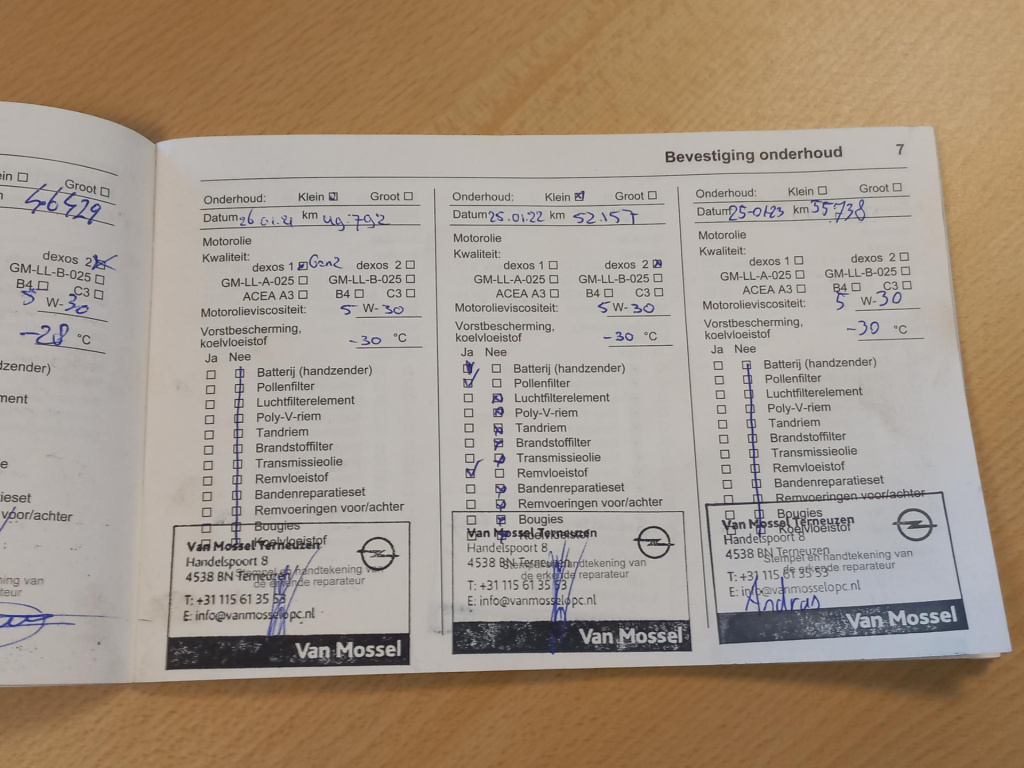 ein ☐ Groot ☐
46429
dexos 2 ☒
GM-LL-B-025 ☐
B4 ☐ C3 ☐
5 W-30
-28 °C
dzender)
ment
e
atieset
voor/achter
ning van
teur
Bevestiging onderhoud 7
Onderhoud: Klein ☑ Groot ☐
Datum 26 01.21 km 49.792
Motorolie
Kwaliteit:
dexos 1 ☑ Gen2 dexos 2 ☐
GM-LL-A-025 ☐ GM-LL-B-025 ☐
ACEA A3 ☐ B4 ☐ C3 ☐
Motorolieviscositeit: 5 W-30
Vorstbescherming,
koelvloeistof -30 °C
Ja Nee
Batterij (handzender)
Pollenfilter
Luchtfilterelement
Poly-V-riem
Tandriem
Brandstoffilter
Transmissieolie
Remvloeistof
Bandenreparatieset
Remvoeringen voor/achter
Bougies
Koelvloeistof
Stempel en handtekening van
de erkende reparateur
Van Mossel Terneuzen
Handelspoort 8
4538 BN Terneuzen
T: +31 115 61 35 53
E: info@vanmosselopc.nl
Van Mossel
Onderhoud: Klein ☒ Groot ☐
Datum 25.01.22 km
Motorolie
Kwaliteit:
dexos 1 ☐ dexos 2 ☒
GM-LL-A-025 ☐ GM-LL-B-025 ☐
ACEA A3 ☐ B4 ☐ C3 ☐
Motorolieviscositeit: 5 W-30
Vorstbescherming,
koelvloeistof -30 °C
Ja Nee
Batterij (handzender)
Pollenfilter
Luchtfilterelement
Poly-V-riem
Tandriem
Brandstoffilter
Transmissieolie
Remvloeistof
Bandenreparatieset
Remvoeringen voor/achter
Bougies
Koelvloeistof
Stempel en handtekening van
de erkende reparateur
Van Mossel Terneuzen
Handelspoort 8
4538 BN Terneuzen
T: +31 115 61 35 53
E: info@vanmosselopc.nl
Van Mossel
Onderhoud: Klein ☐ Groot ☐
Datum 25-01-23 km 55738
Motorolie
Kwaliteit:
dexos 1 ☐ dexos 2 ☐
GM-LL-A-025 ☐ GM-LL-B-025 ☐
ACEA A3 ☐ B4 ☐ C3 ☐
Motorolieviscositeit: 5 W-30
Vorstbescherming,
koelvloeistof -30 °C
Ja Nee
Batterij (handzender)
Pollenfilter
Luchtfilterelement
Poly-V-riem
Tandriem
Brandstoffilter
Transmissieolie
Remvloeistof
Bandenreparatieset
Remvoeringen voor/achter
Bougies
Koelvloeistof
Stempel en handtekening van
de erkende reparateur
Van Mossel Terneuzen
Handelspoort 8
4538 BN Terneuzen
T: +31 115 61 35 53
E: info@vanmosselopc.nl
Andras
Van Mossel